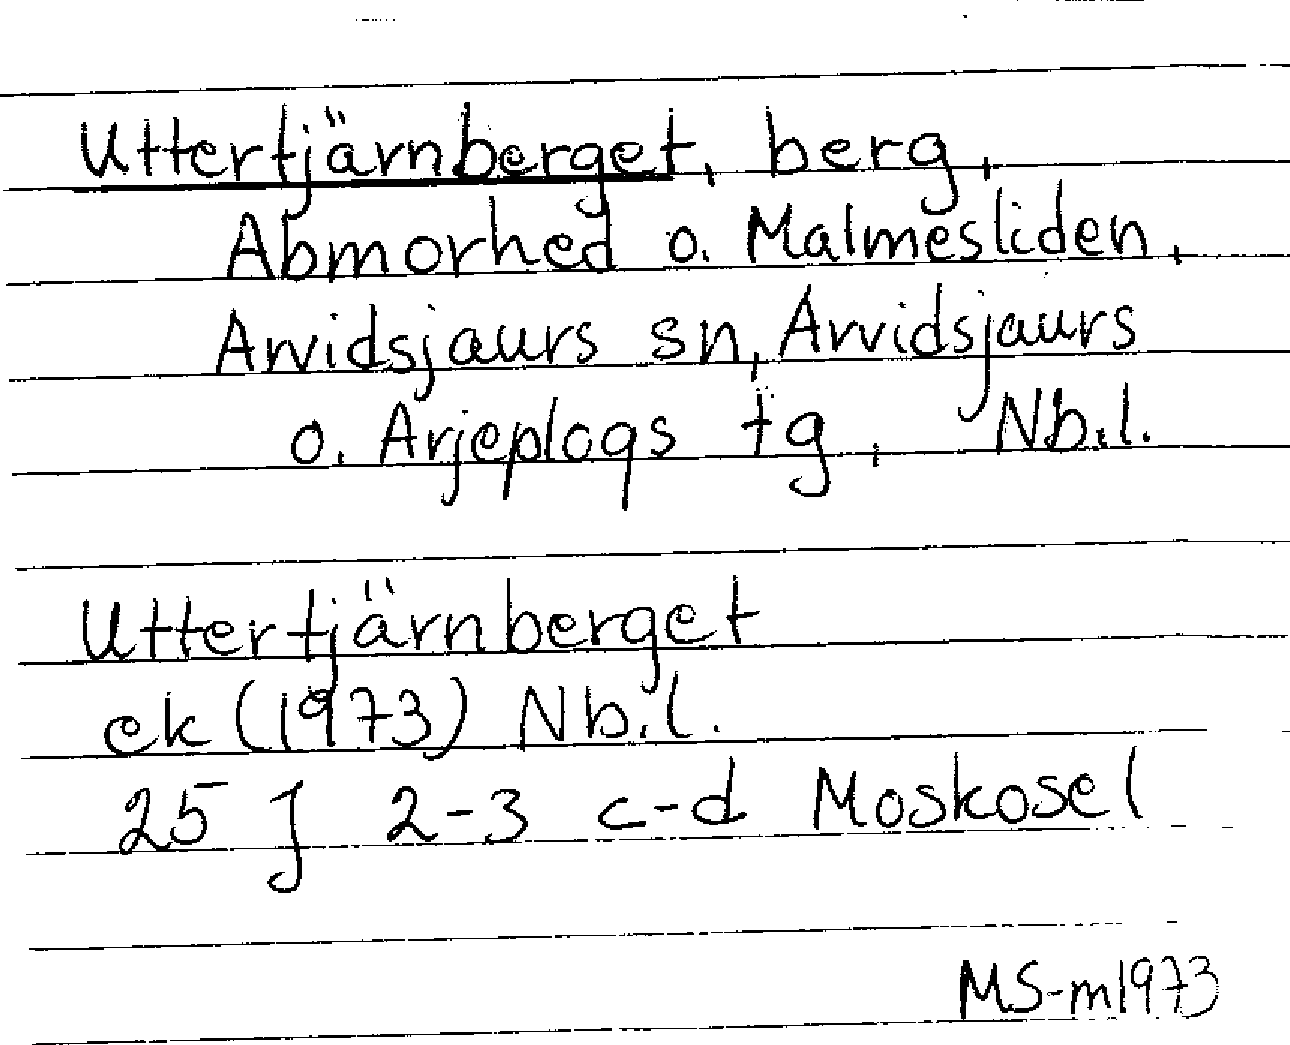 Uttertjärnberget, berg,
Abmorhed o. Malmesliden,
Arvidsjaurs sn, Arvidsjaurs
o. Arjeplogs tg, Nb.l.
Uttertjärnberget
ek (1973) Nb.l.
25 J 2-3 c-d Moskosel
MS-m1973